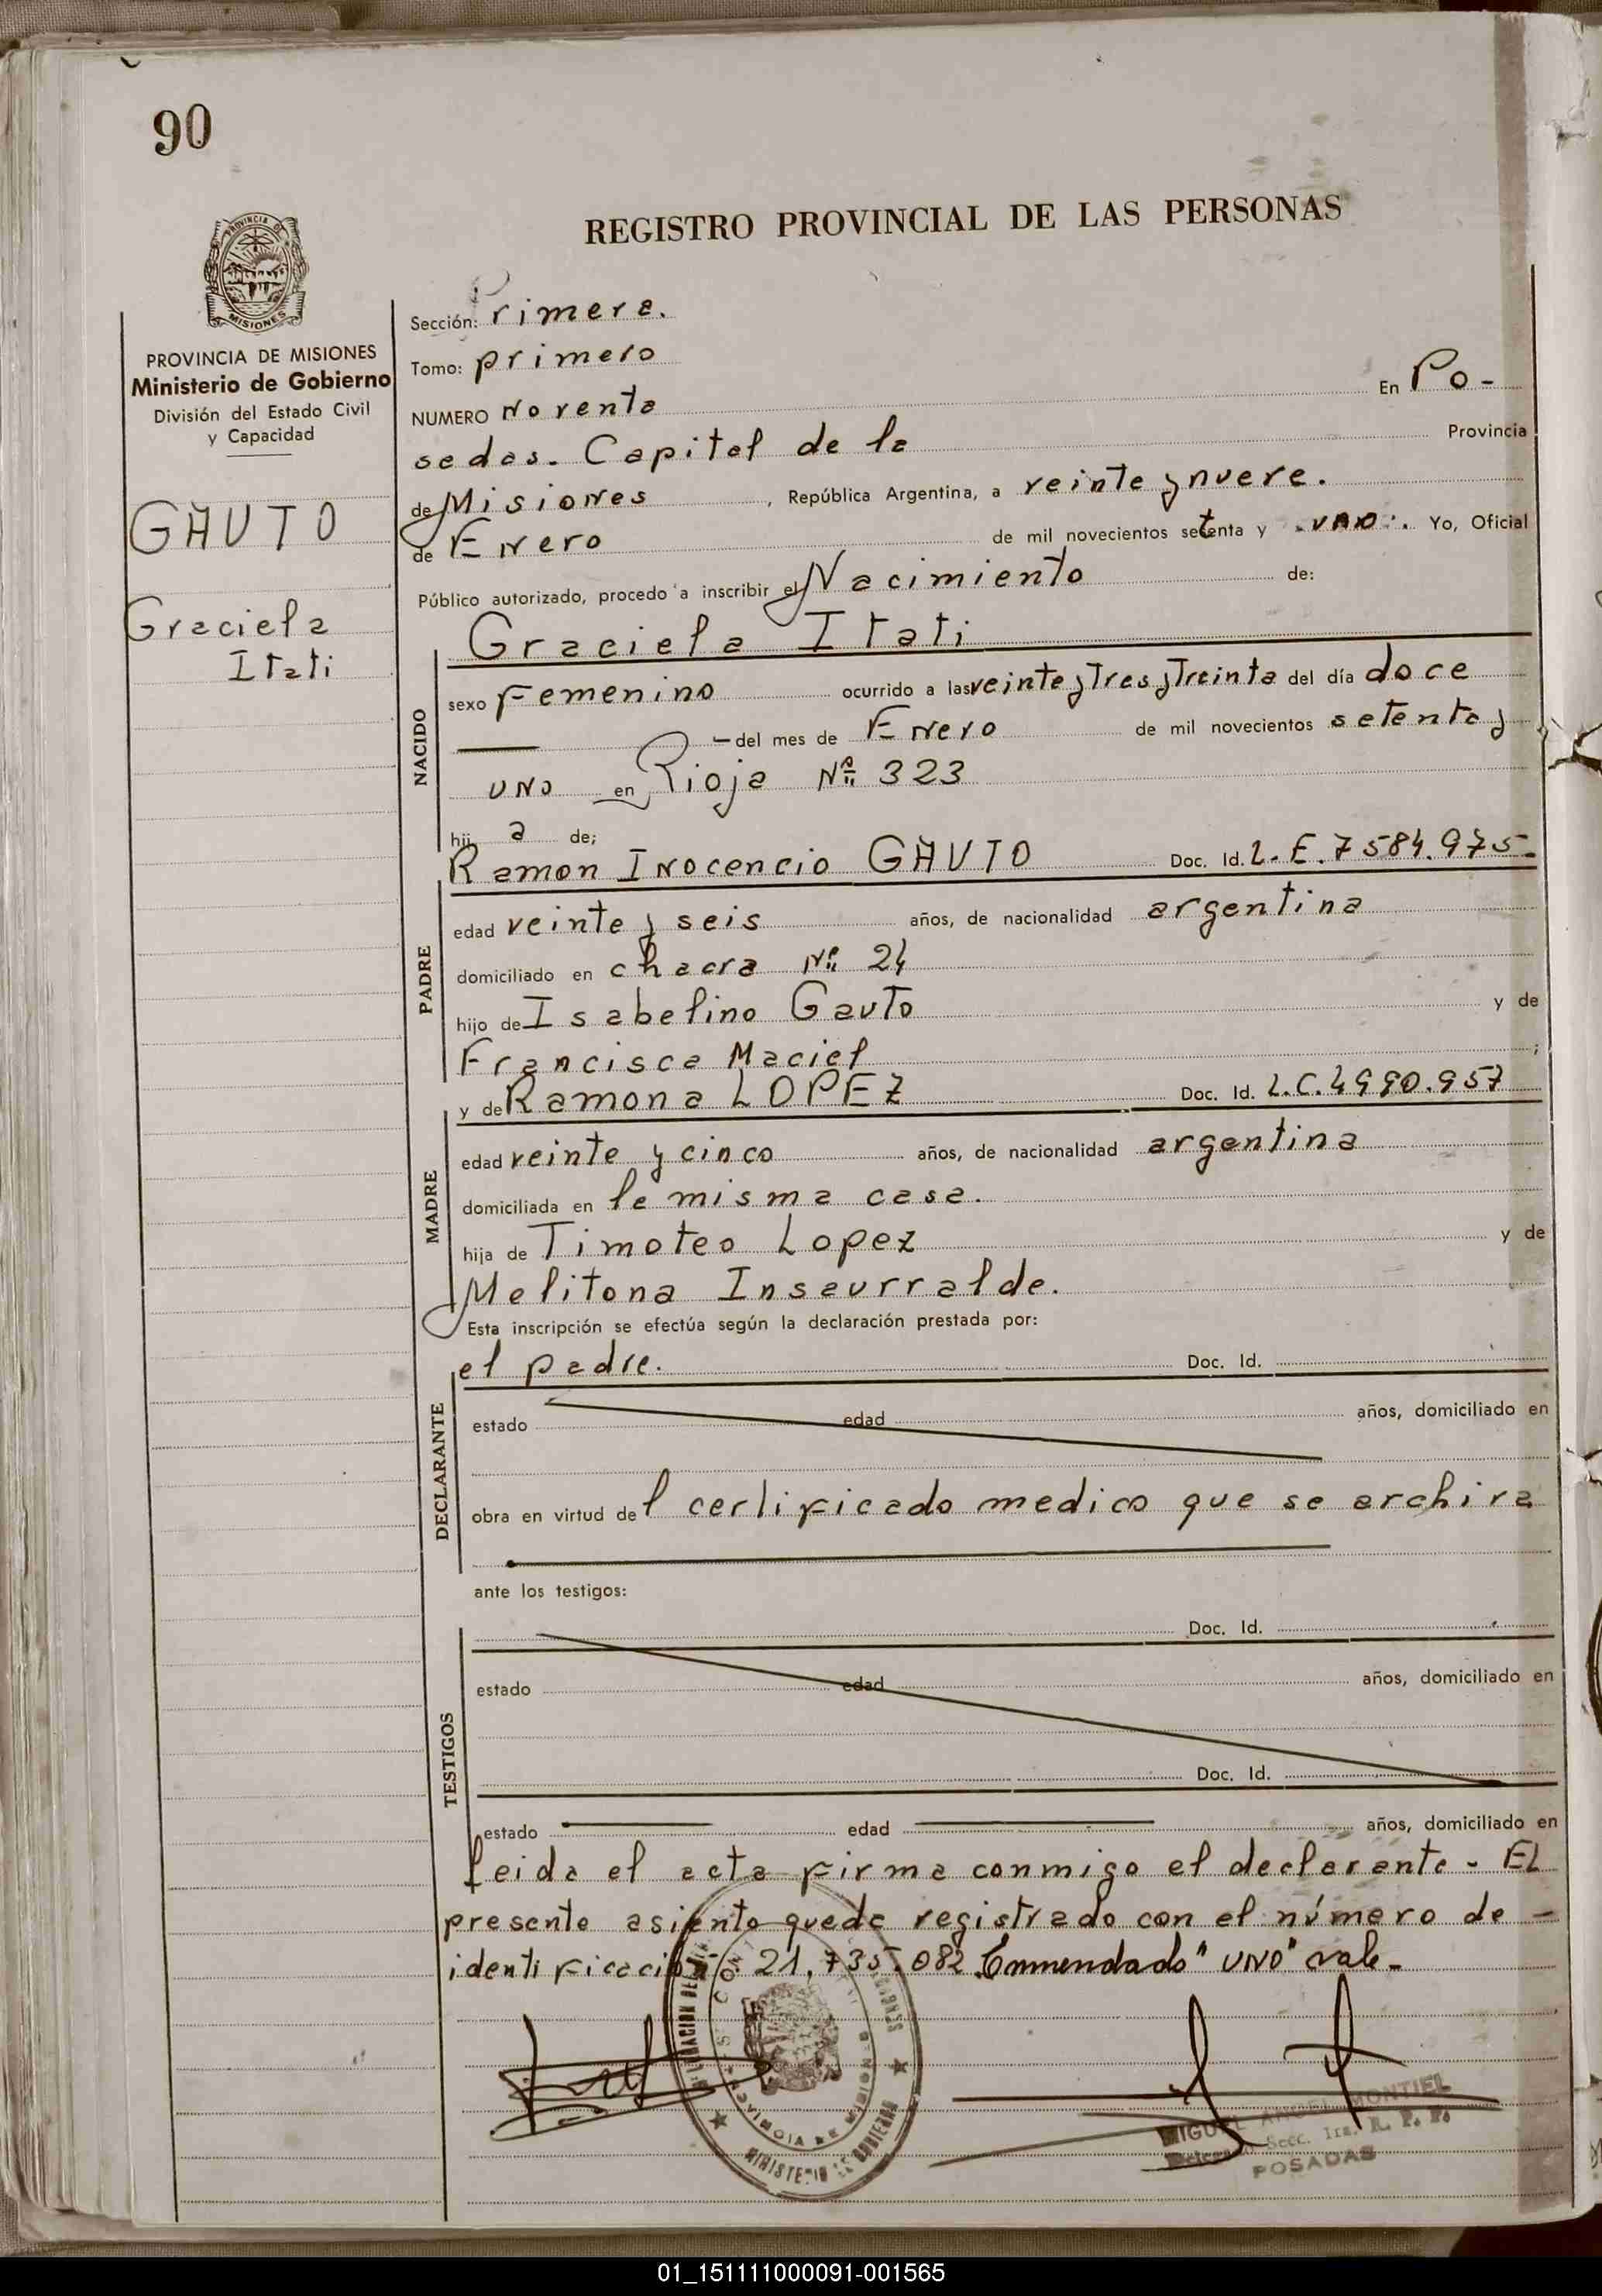 90
REGISTRO PROVINCIAL DE LAS PERSONAS
PROVINCIA DE MISIONES
PROVINCIA DE MISIONES
Ministerio de Gobierno
División del Estado Civil
y Capacidad
GAUTO
Graciela
Itati
Sección: Primera.
Tomo: primero
NUMERO Noventa En Po-
sadas. Capital de la Provincia
de Misiones , República Argentina, a veinte y nueve.
de Enero de mil novecientos setenta y uno. Yo, Oficial
Público autorizado, procedo a inscribir el Nacimiento de:
Graciela Itati
NACIDO
sexo Femenino ocurrido a las veinte y Tres y Treinta del día doce
del mes de Enero de mil novecientos setenta y
uno en Rioja Nº 323
hij a de;
Ramon Inocencio GAUTO Doc. Id. L.E. 7584.975-
PADRE
edad veinte y seis años, de nacionalidad argentina
domiciliado en chacra Nº 24
hijo de Isabelino Gauto y de
Francisca Maciel ;
y de Ramona LOPEZ Doc. Id. L.C. 4990.957
MADRE
edad veinte y cinco años, de nacionalidad argentina
domiciliada en la misma casa.
hija de Timoteo Lopez y de
Melitona Insaurralde.
Esta inscripción se efectúa según la declaración prestada por:
el padre. Doc. Id.
DECLARANTE
estado edad años, domiciliado en
obra en virtud del certificado medico que se archiva
ante los testigos:
Doc. Id.
TESTIGOS
estado edad años, domiciliado en
Doc. Id.
estado edad años, domiciliado en
leida el acta firma conmigo el declarante - El
presente asiento queda registrado con el número de -
identificación: 21.735.082. Enmendado "UNO" vale-
MINISTERIO DE GOBIERNO
PROVINCIA DE MISIONES
MIGUEL ANGEL MONTIEL
Secc. 1ra. R. P. P.
POSADAS
01_151111000091-001565